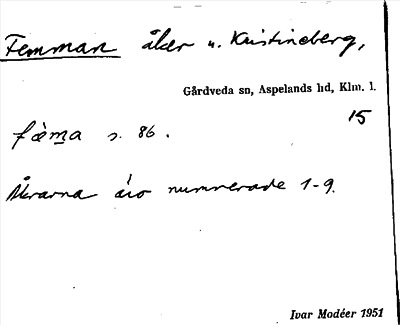 Femman åker u. Kristineberg,
Gårdveda sn, Aspelands hd, Klm. l.
15
fæ̀ma s. 86.
Åkrarna äro numrerade 1-9.
Ivar Modéer 1951